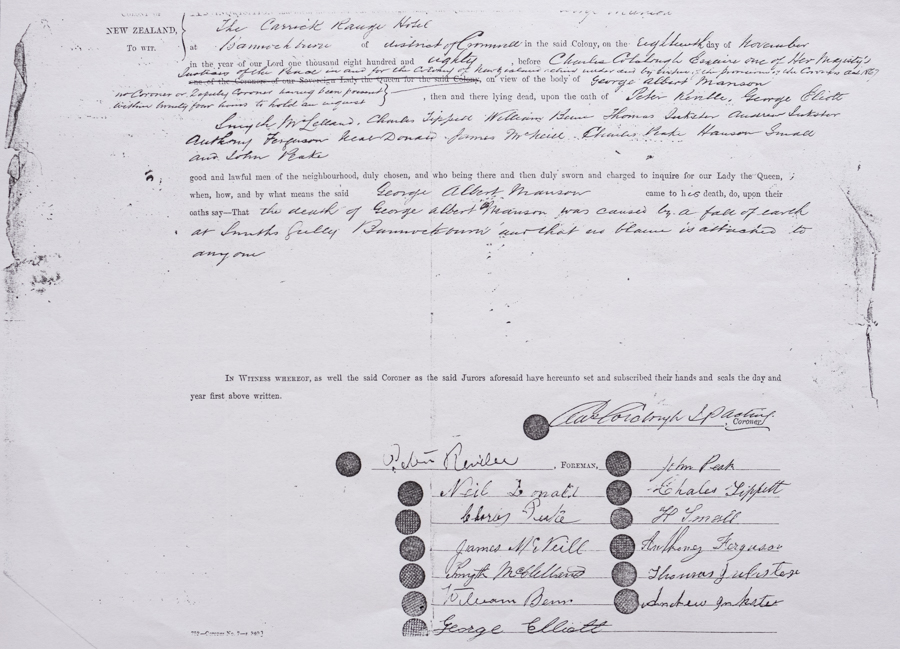 NEW ZEALAND,
TO WIT.
The Carrick Range Hotel
at Bannockburn of district of Cromwell in the said Colony, on the Eighteenth day of November
in the year of our Lord one thousand eight hundred and eighty, before Charles Colclough Esquire one of Her Majesty's
Justices of the Peace in and for the Colony of New Zealand acting under and by virtue of the provisions of the Coroners Act 1867
one of the Coroners of our Sovereign Lady the Queen for the said Colony, on view of the body of George Albert Manson
no Coroner or Deputy Coroner having been present
within twenty four hours to hold an inquest
, then and there lying dead, upon the oath of Peter Reville, George Eliott
Smyth McLelland, Charles Tippett William Benn Thomas Inkster Andrew Inkster
Anthony Ferguson Neal Donald James McNeill Charles Peake Hanson Small
and John Peake
good and lawful men of the neighbourhood, duly chosen, and who being there and then duly sworn and charged to inquire for our Lady the Queen,
when, how, and by what means the said George Albert Manson came to his death, do, upon their
oaths say—That the death of George Albert Manson was caused by a fall of earth
at Smiths gully Bannockburn and that no blame is attached to
any one
IN WITNESS WHEREOF, as well the said Coroner as the said Jurors aforesaid have hereunto set and subscribed their hands and seals the day and
year first above written.
Chas Colclough J P acting
Coroner
Peter Reville, FOREMAN,
John Peak
Neil Donald
Charles Tippett
Charles Peake
H Small
James McNeill
Anthoney Ferguson
Smyth McClelland
Thomas Inkster
William Benn
Andrew Inkster
George Elliott